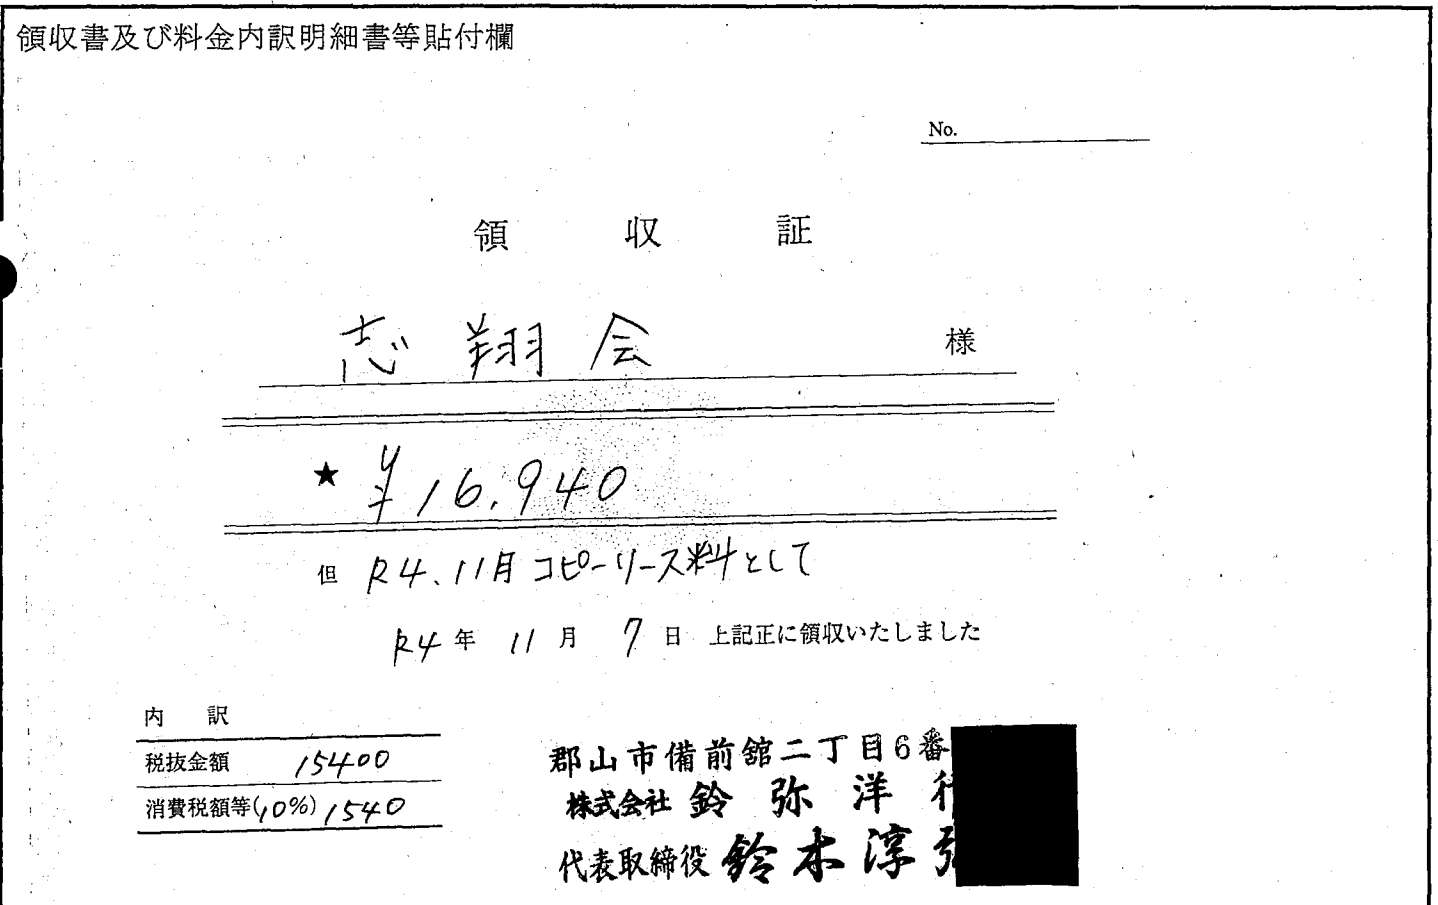 領収書及び料金内訳明細書等貼付欄
No.
領収証
志翔会 様
★ ¥16,940
但 R4.11月コピーリース料として
R4年 11月 7日 上記正に領収いたしました
内訳
税抜金額 15400
消費税額等(10%) 1540
郡山市備前舘二丁目6番
株式会社 鈴弥洋行
代表取締役 鈴木淳